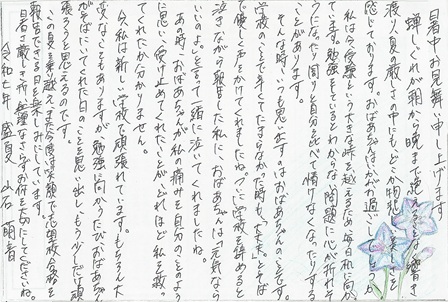 暑中お見舞い申し上げます。
蝉しぐれが朝から晩まで絶えることなく響き
渡り、夏の厳しさの中にもどこか物寂しさを
感じております。おばあちゃんはいかがお過ごしでしょうか。
私は今、受験という大きな峠を越えるため、毎日机に向かっ
ています。勉強をしているとわからない問題に心が折れそ
うになったり、周りと自分を比べて情けなくなったりする
ことがあります。
そんな時、いつも思い出すのはおばあちゃんのことです。
学校のことで辛くてたまらなかった時も、「大丈夫」とそば
で優しく声をかけてくれましたね。ついに学校を辞めると
泣きながら報告した私に、おばあちゃんは「元気なら
いいのよ」と言って一緒に泣いてくれましたね。
あの時、おばあちゃんが私の痛みを自分のことのよう
に思い、受け止めてくれたことが、どれほど私を救っ
てくれたか分かりません。
今、私は新しい学校で頑張れています。もちろん大
変なこともありますが、勉強に向かうたび、おばあちゃん
がそばにいてくれた日のことを思い出し、もう少しだけ頑
張ろうと思えるのです。
この夏を乗り越え、また今度は笑顔で志望校合格を
報告できる日を楽しみにしています。
暑さ厳しき折、無理なさらずお体を大切にしてくださいね。
令和七年 盛夏 山石 萌音